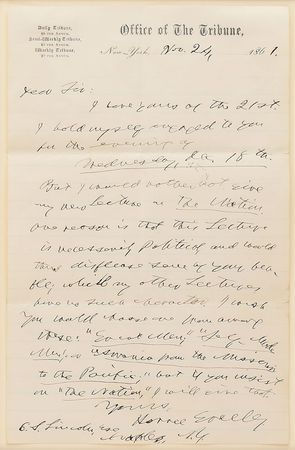 Daily Tribune,
Semi-Weekly Tribune,
Weekly Tribune,
Office of The Tribune,
New York, Nov. 24, 1861.
Dear Sir:
I have yours of the 21st.
I hold myself engaged to you
for the evening of
Wednesday, Dec 18th.
But I would rather not give
my new Lecture on The Nation,
one reason is that this Lecture
is necessarily Political and would
thus displease some of your hea-
rers, which my other Lectures
have no such character. I wish
you would choose one from among
these: "Great Men," "Self-Made
Men," or "Across from the Mississippi
to the Pacific," but if you insist
on "The Nation," I will give that.
Yours,
Horace Greeley
C. S. Lincoln, Esq
Naples, N.Y.